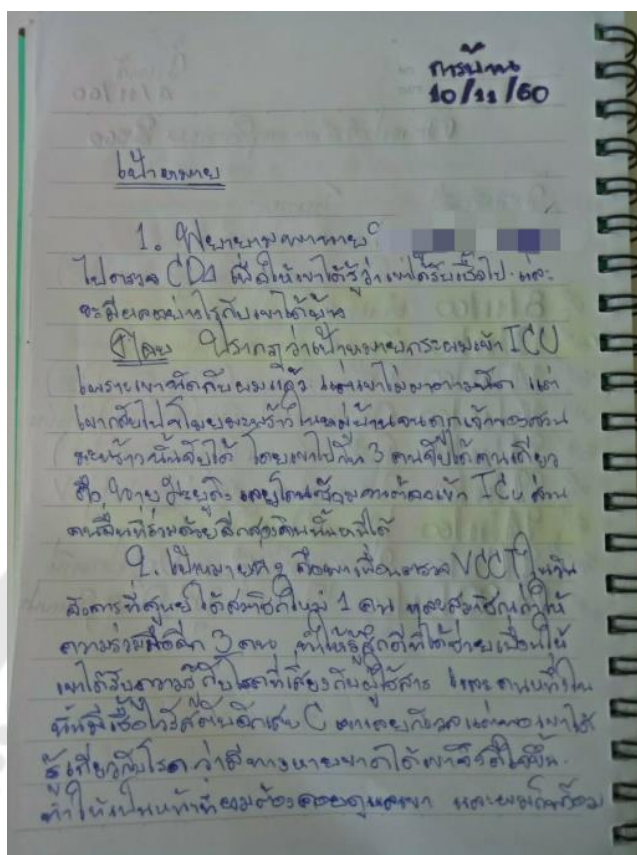 การบ้าน
10/11/60
เป้าหมาย
1. พยายามพานาย
ไปตรวจ CD4 เพื่อให้เขาได้รู้ว่าเขาได้รับเชื้อไป และ
จะมีผลอย่างไรกับเขาได้บ้าง
โดย ปรากฏว่าเป้าหมายกระผมเข้า ICU
เพราะเขานัดกับผมแล้ว แต่เขาไม่มาตามนัด แต่
เขากลับไปขโมยมะพร้าวในหมู่บ้านจนถูกเจ้าของสวน
มะพร้าวนั้นจับได้ โดยเขาไปกัน 3 คนจับได้คนเดียว
คือ นาย เลยโดนซ้อมจนต้องเข้า ICU ส่วน
คนอื่นที่ร่วมด้วยอีกสองคนนั้นหนีได้
2. เป้าหมายที่ 2 คือพาเพื่อนตรวจ VCCT ในวัน
อังคารที่ศูนย์ได้สมาชิกใหม่ 1 คน และสมาชิกเก่าให้
ความร่วมมืออีก 3 คน ทำให้รู้สึกดีที่ได้ช่วยเพื่อนให้
เขาได้รับความรู้กับโรคที่เสี่ยงกับผู้ใช้สาร และคนหนึ่งใน
นั้นมีเชื้อไวรัสตับอักเสบ C เขาเลยกังวลแต่พอเขาได้
รู้เกี่ยวกับโรคว่ามีทางหายขาดได้เขาจึงดีใจขึ้น
ทำให้เป็นหน้าที่ผมต้องคอยดูแลเขา และผมก็พร้อม